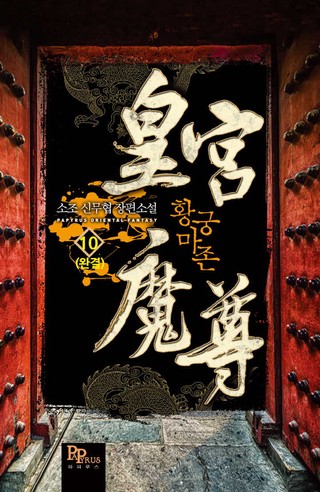 皇宮
魔尊
황궁
마존
소조 신무협 장편소설
PAPYRUS ORIENTAL FANTASY
10
(완결)
PAPYRUS
파피루스